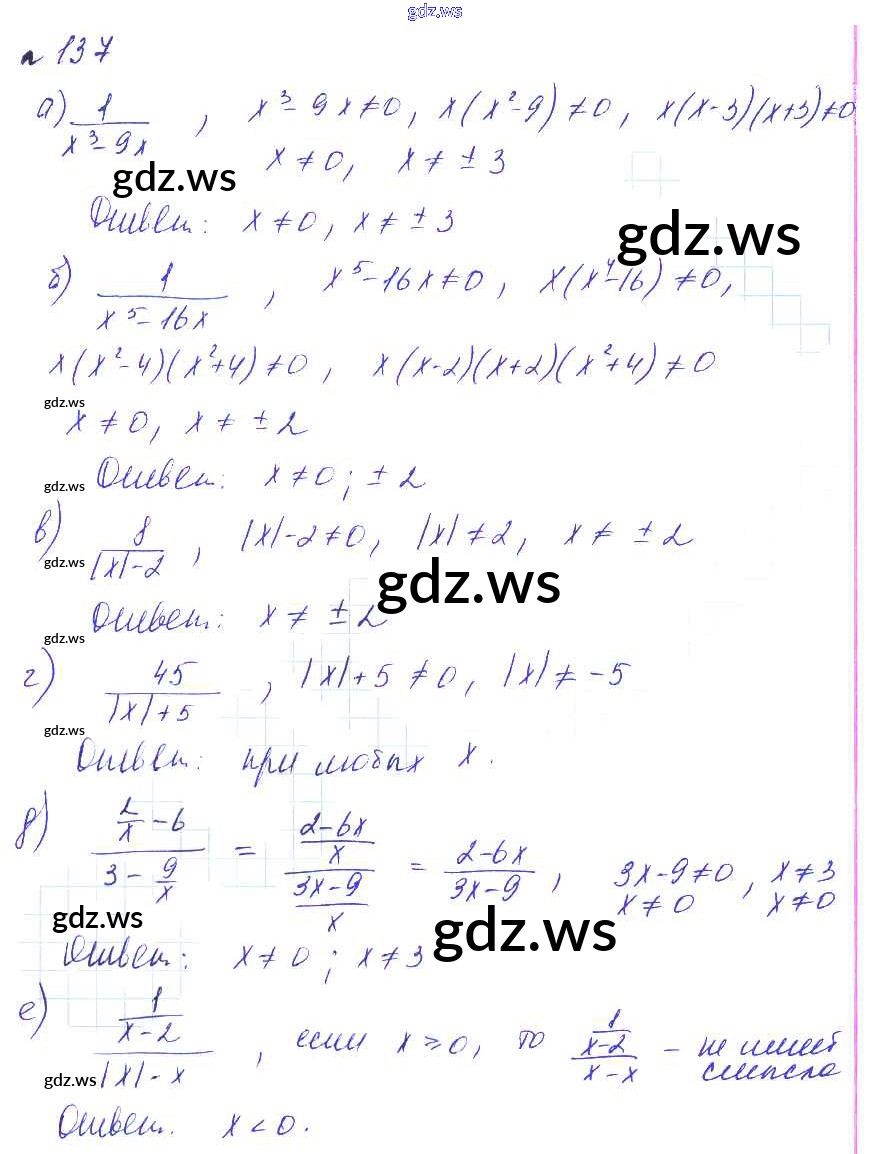 gdz.ws
№ 137
а) 1/(x³-9x), x³-9x≠0, x(x²-9)≠0, x(x-3)(x+3)≠0
x≠0, x≠±3
gdz.ws
Ответ: x≠0, x≠±3
gdz.ws
б) 1/(x⁵-16x), x⁵-16x≠0, x(x⁴-16)≠0,
x(x²-4)(x²+4)≠0, x(x-2)(x+2)(x²+4)≠0
gdz.ws
x≠0, x≠±2
gdz.ws Ответ: x≠0; ±2
в) 8/(|x|-2), |x|-2≠0, |x|≠2, x≠±2
gdz.ws
gdz.ws
Ответ: x≠±2
gdz.ws
г) 45/(|x|+5), |x|+5≠0, |x|≠-5
gdz.ws
Ответ: при любых x.
д) (2/x-6)/(3-9/x) = ((2-6x)/x)/((3x-9)/x) = (2-6x)/(3x-9), 3x-9≠0, x≠3
x≠0 x≠0
gdz.ws
gdz.ws
Ответ: x≠0; x≠3
е) (1/(x-2))/(|x|-x), если x≥0, то (1/(x-2))/(x-x) - не имеет
смысла
gdz.ws
Ответ. x<0.